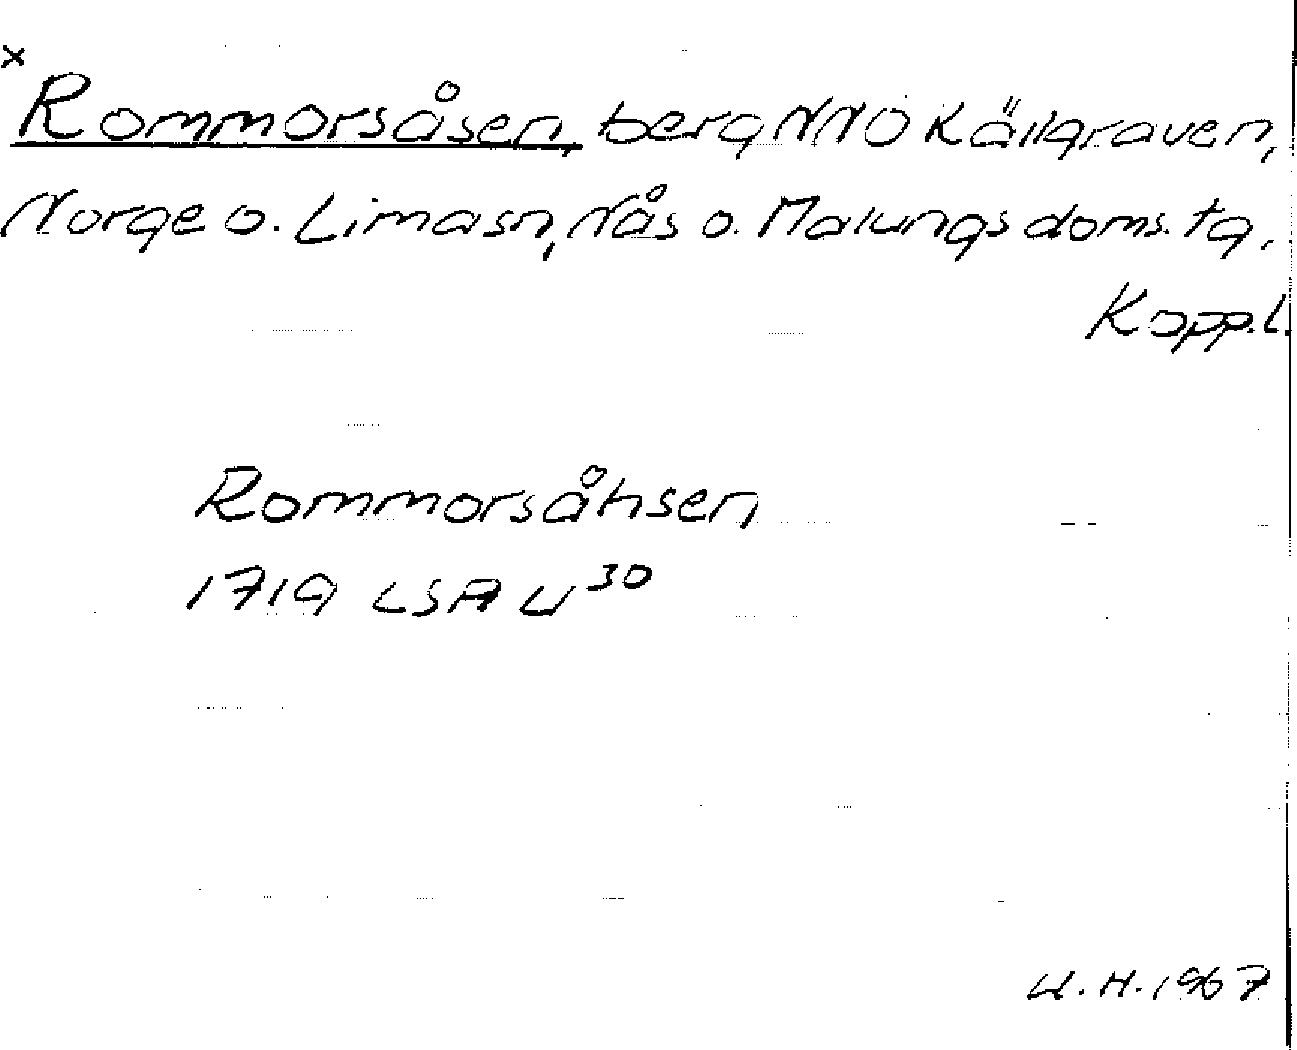 x
Rommorsåsen, berg NNO Källgraven,
Norge o. Lima sn, Nås o. Malungs doms. tg,
Kopp. l.
Rommorsåhsen
1719 LSA U³⁰
U. H. 1967